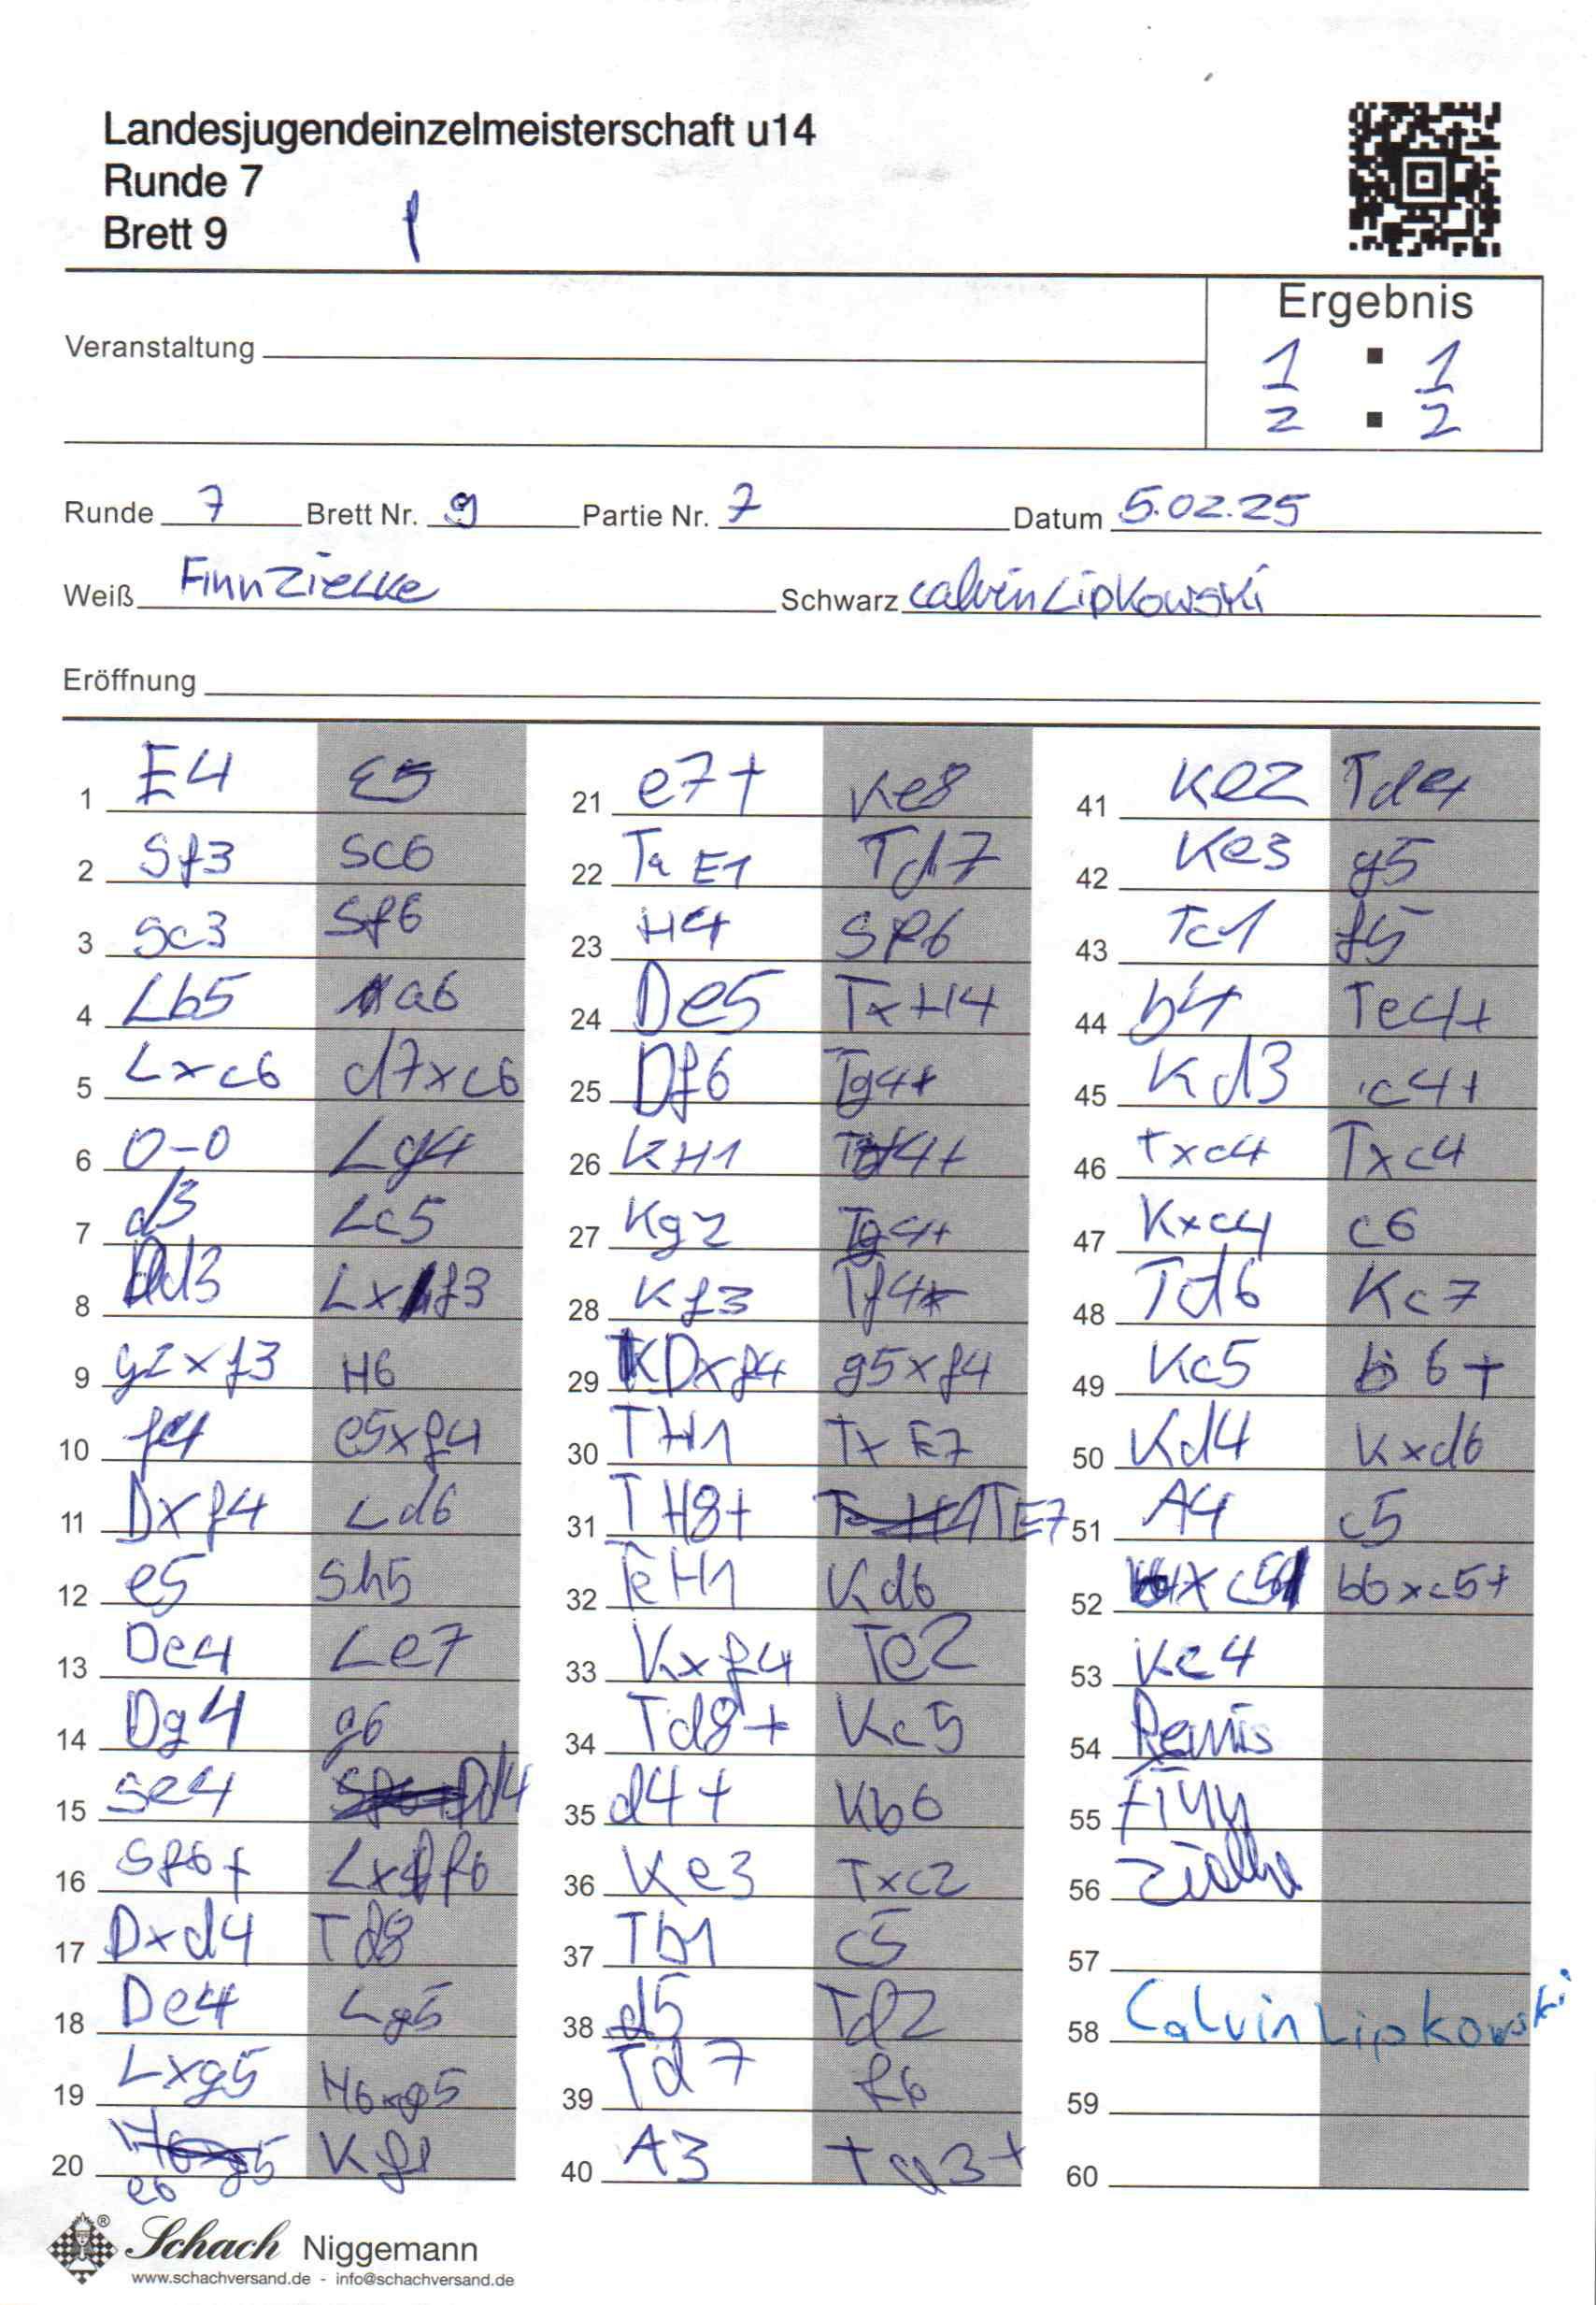 Landesjugendeinzelmeisterschaft u14
Runde 7
Brett 9
Ergebnis
Veranstaltung
1 : 1
2 : 2
Runde 7 Brett Nr. 9 Partie Nr. 7 Datum 5.02.25
Weiß Finn Zielke Schwarz Calvin Lipkowski
Eröffnung
1 E4 E5
2 Sf3 Sc6
3 Sc3 Sf6
4 Lb5 a6
5 Lxc6 d7xc6
6 0-0 Lg4
7 d3 Lc5
8 Dd3 Lxf3
9 g2xf3 H6
10 f4 e5xf4
11 Dxf4 Ld6
12 e5 Sh5
13 De4 Le7
14 Dg4 g6
15 Se4 Dd4
16 Sf6+ Lxf6
17 Dxd4 Td8
18 De4 Lg5
19 Lxg5 H6xg5
20 e6 Kf8
21 e7+ Ke8
22 Ta E1 Td7
23 H4 Sf6
24 De5 TxH4
25 Df6 Tg4+
26 KH1 TH4+
27 Kg2 Tg4+
28 Kf3 Tf4+
29 KDxf4 g5xf4
30 TH1 TxE7
31 TH8+ TE7
32 TeH1 Kd6
33 Kxf4 Te2
34 Td8+ Kc5
35 d4+ Kb6
36 Ke3 Txc2
37 Tb1 c5
38 d5 Td2
39 Td7 f6
40 A3 Td3+
41 Ke2 Td4
42 Ke3 g5
43 Tc1 f5
44 b4 Te4+
45 Kd3 c4+
46 Txc4 Txc4
47 Kxc4 c6
48 Td6 Kc7
49 Kc5 b6+
50 Kd4 Kxd6
51 A4 c5
52 xc5 b6xc5+
53 Kc4
54 Remis
55 Finn
56 Zielke
57
58 Calvin Lipkowski
59
60
Schach Niggemann
www.schachversand.de - info@schachversand.de